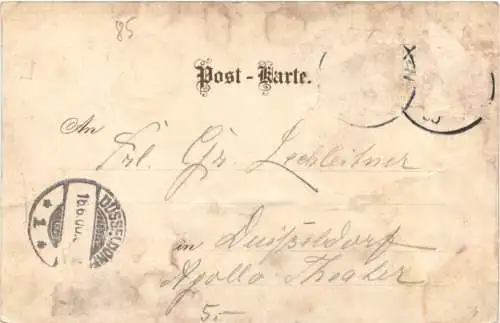 85
Post-Karte.
An
Frl. Gr. Lechleitner
in Düsseldorf
Apollo Theater
5.-
DÜSSELDORF
* 1 *